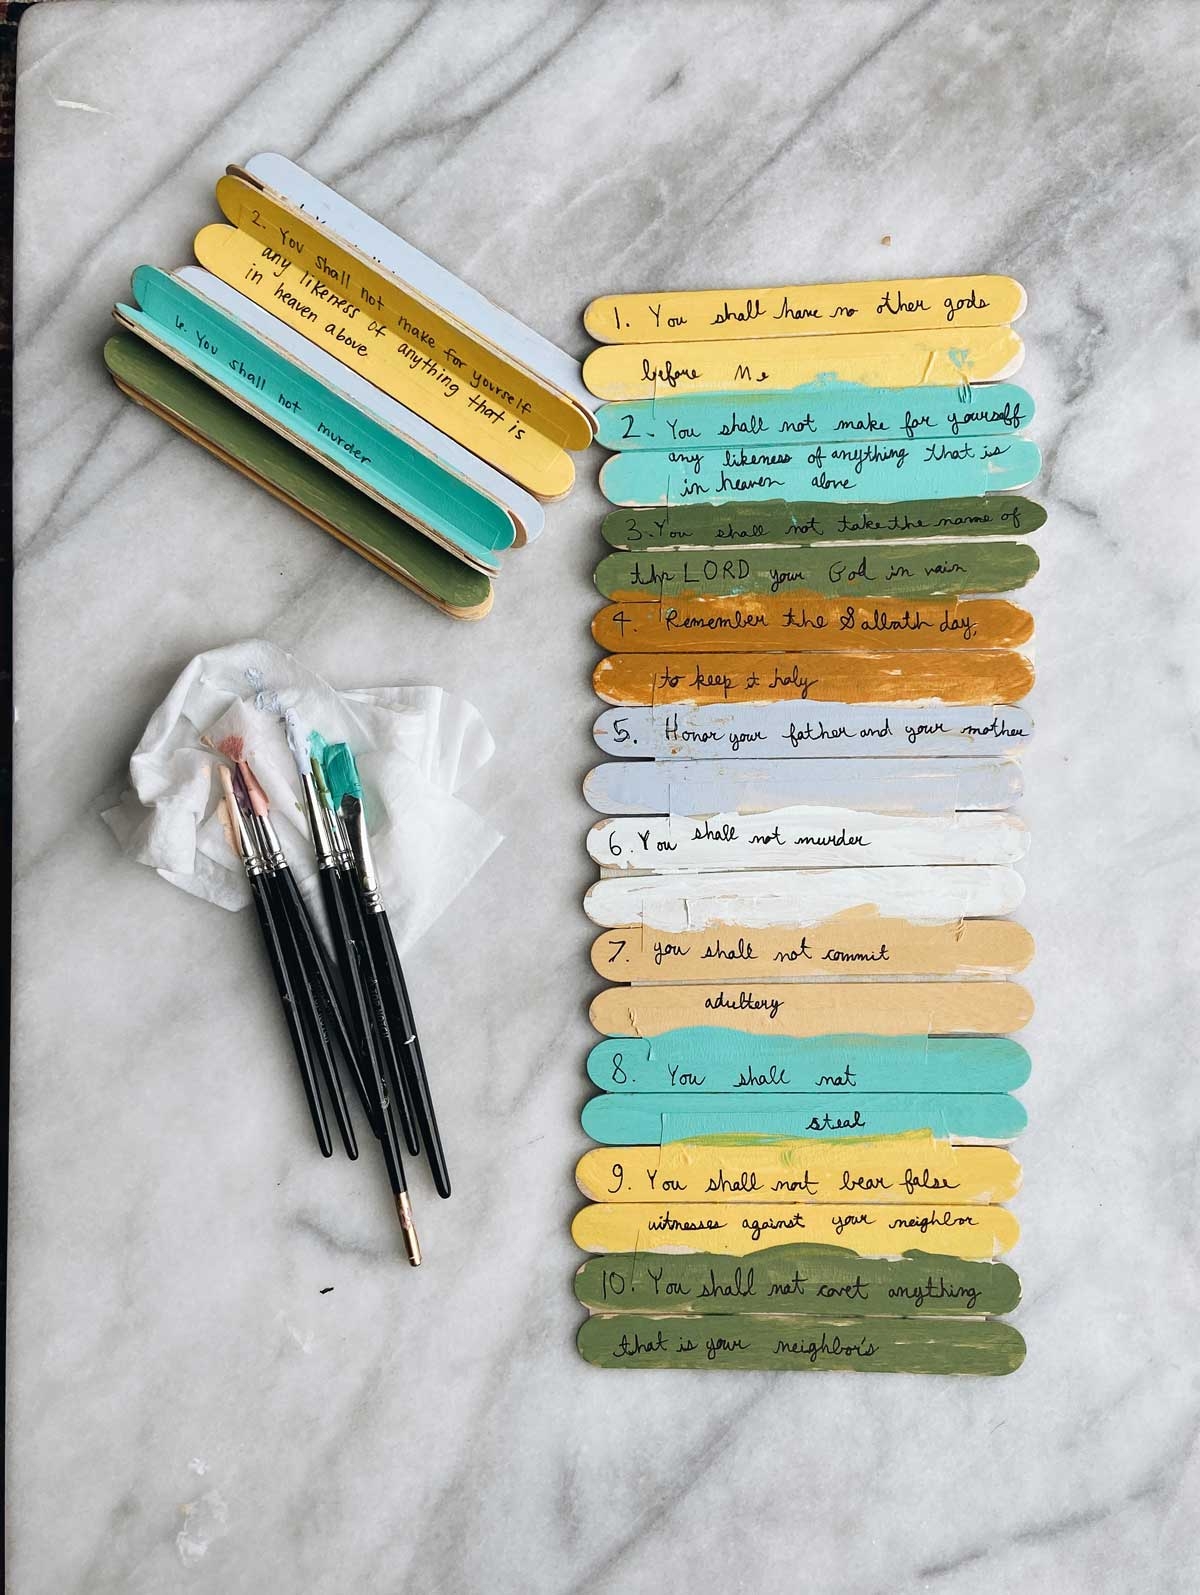 2. You shall not make for yourself
any likeness of anything that is
in heaven above
6. You shall not murder
1. You shall have no other gods
before Me
2. You shall not make for yourself
any likeness of anything that is
in heaven above
3. You shall not take the name of
the LORD your God in vain
4. Remember the Sabbath day,
to keep it holy
5. Honor your father and your mother
6. You shall not murder
7. you shall not commit
adultery
8. You shall not
steal
9. You shall not bear false
witnesses against your neighbor
10. You shall not covet anything
that is your neighbor's